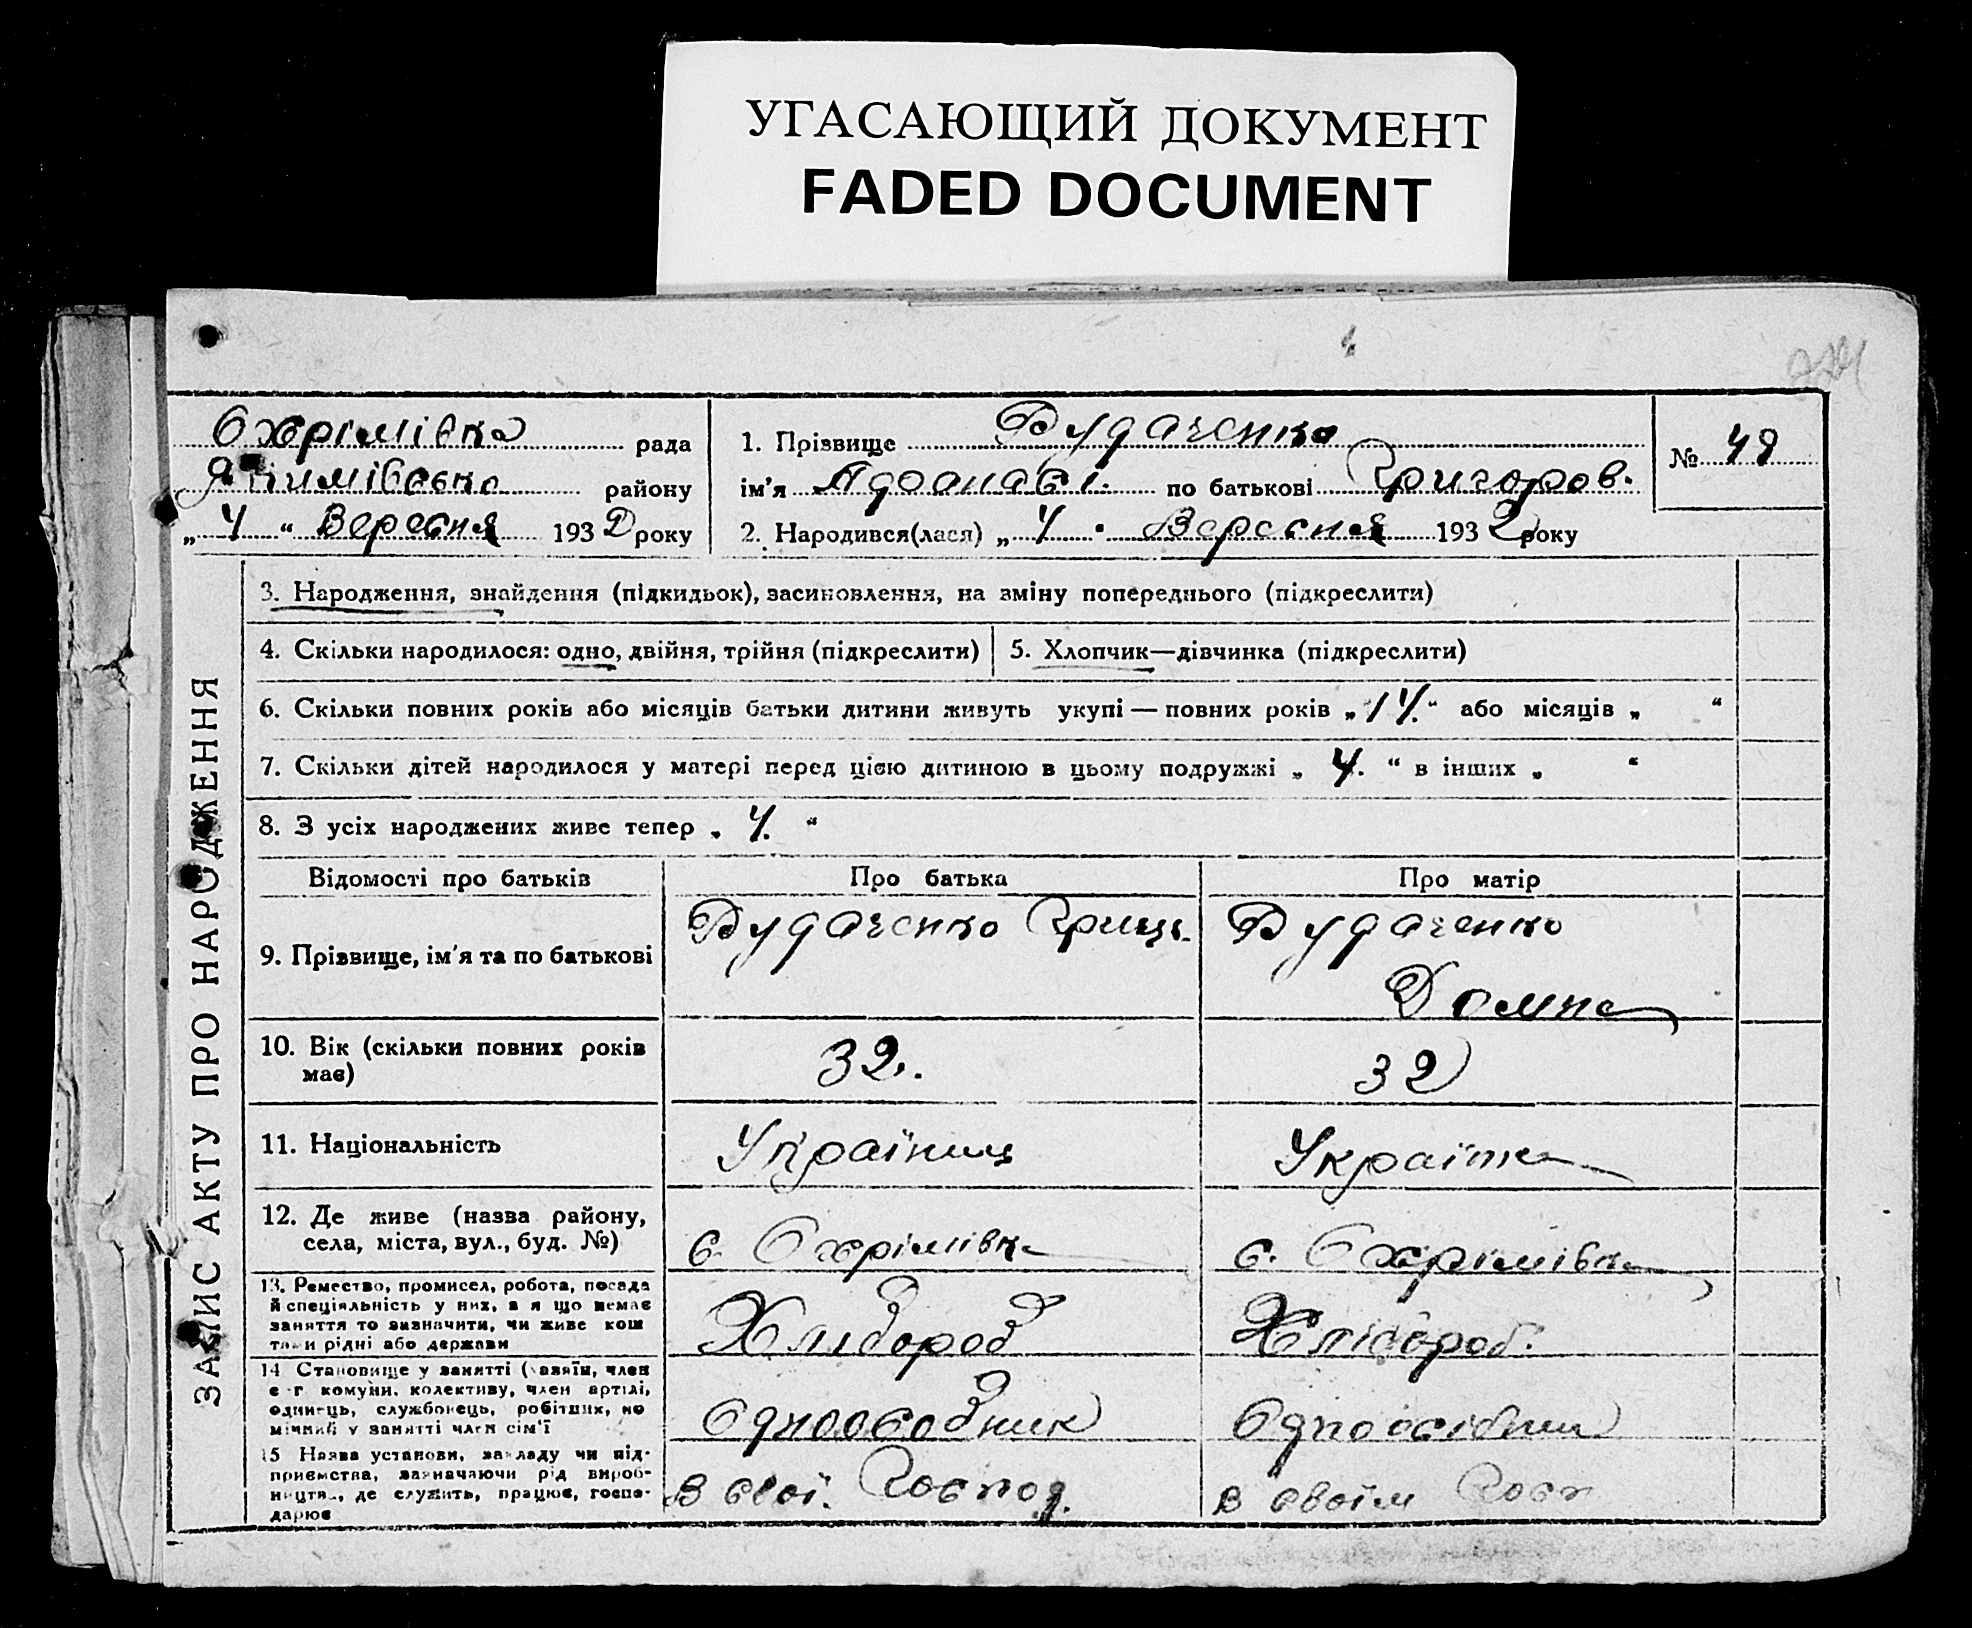 УГАСАЮЩИЙ ДОКУМЕНТ
FADED DOCUMENT
Охрімівка рада
Якимівсько району
„ 4 “ Вересня 1932 року
1. Прізвище Рудаченко
ім’я по батькові Григоров.
2. Народився(лася) „ 4 “ Вересня 1932 року
№ 49
ЗАПИС АКТУ ПРО НАРОДЖЕННЯ
3. Народження, знайдення (підкидьок), засиновлення, на зміну попереднього (підкреслити)
4. Скільки народилося: одно, двійня, трійня (підкреслити)
5. Хлопчик—дівчинка (підкреслити)
6. Скільки повних років або місяців батьки дитини живуть укупі — повних років „ 14. “ або місяців „ “
7. Скільки дітей народилося у матері перед цією дитиною в цьому подружжі „ 4. “ в інших „ “
8. З усіх народжених живе тепер „ 4. “
Відомості про батьків
Про батька
Про матір
9. Прізвище, ім’я та по батькові
Рудаченко Гриць.
Рудаченко
Домна
10. Вік (скільки повних років
має)
32.
32
11. Національність
Українец
Українка
12. Де живе (назва району,
села, міста, вул., буд. №)
с. Охрімівка
с. Охрімівка
13. Ремество, промисел, робота, посада
й спеціяльність у них, а я що немає
заняття то визначити, чи живе кош
тами рідні або держави
Хлібороб
Хлібороб.
14 Становище у занятті (хазяїн, член
с г комуни, колективу, член артілі,
одинець, службовець, робітник, по
мічний у занятті член сім’ї
Одноособник
Одноосібник
15 Назва установи, закладу чи під-
приємства, зазначаючи рід вироб-
ництва, де служить, працює, госпо-
дарює
В свої. Господ.
в своїм Госп